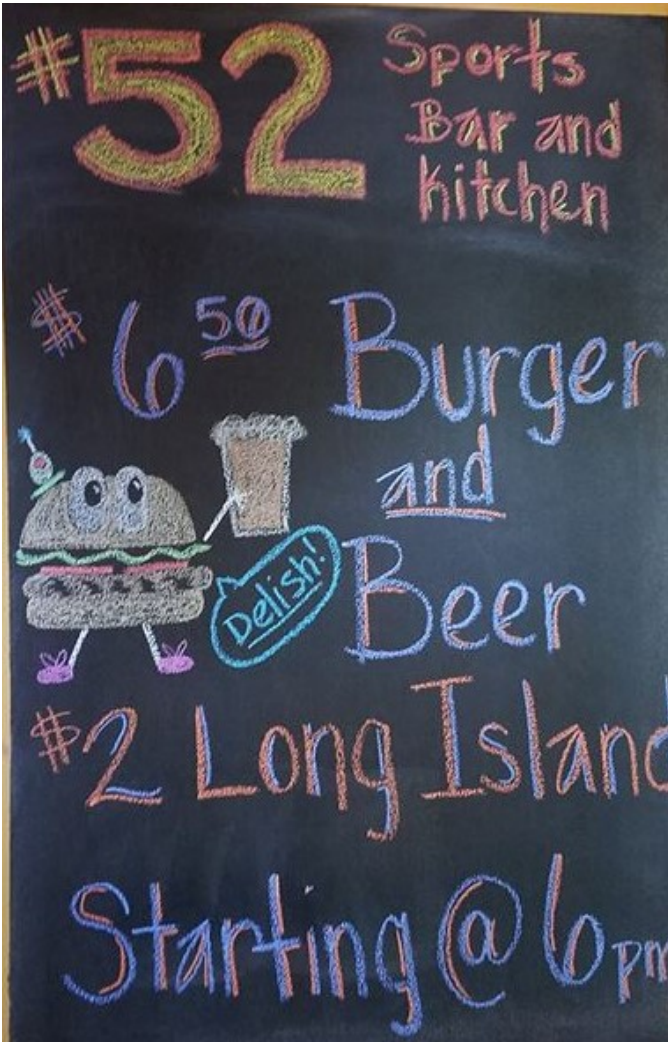 #52 Sports
Bar and
Kitchen
$6 50 Burger
and
Delish!
Beer
$2 Long Island
Starting @ 6pm